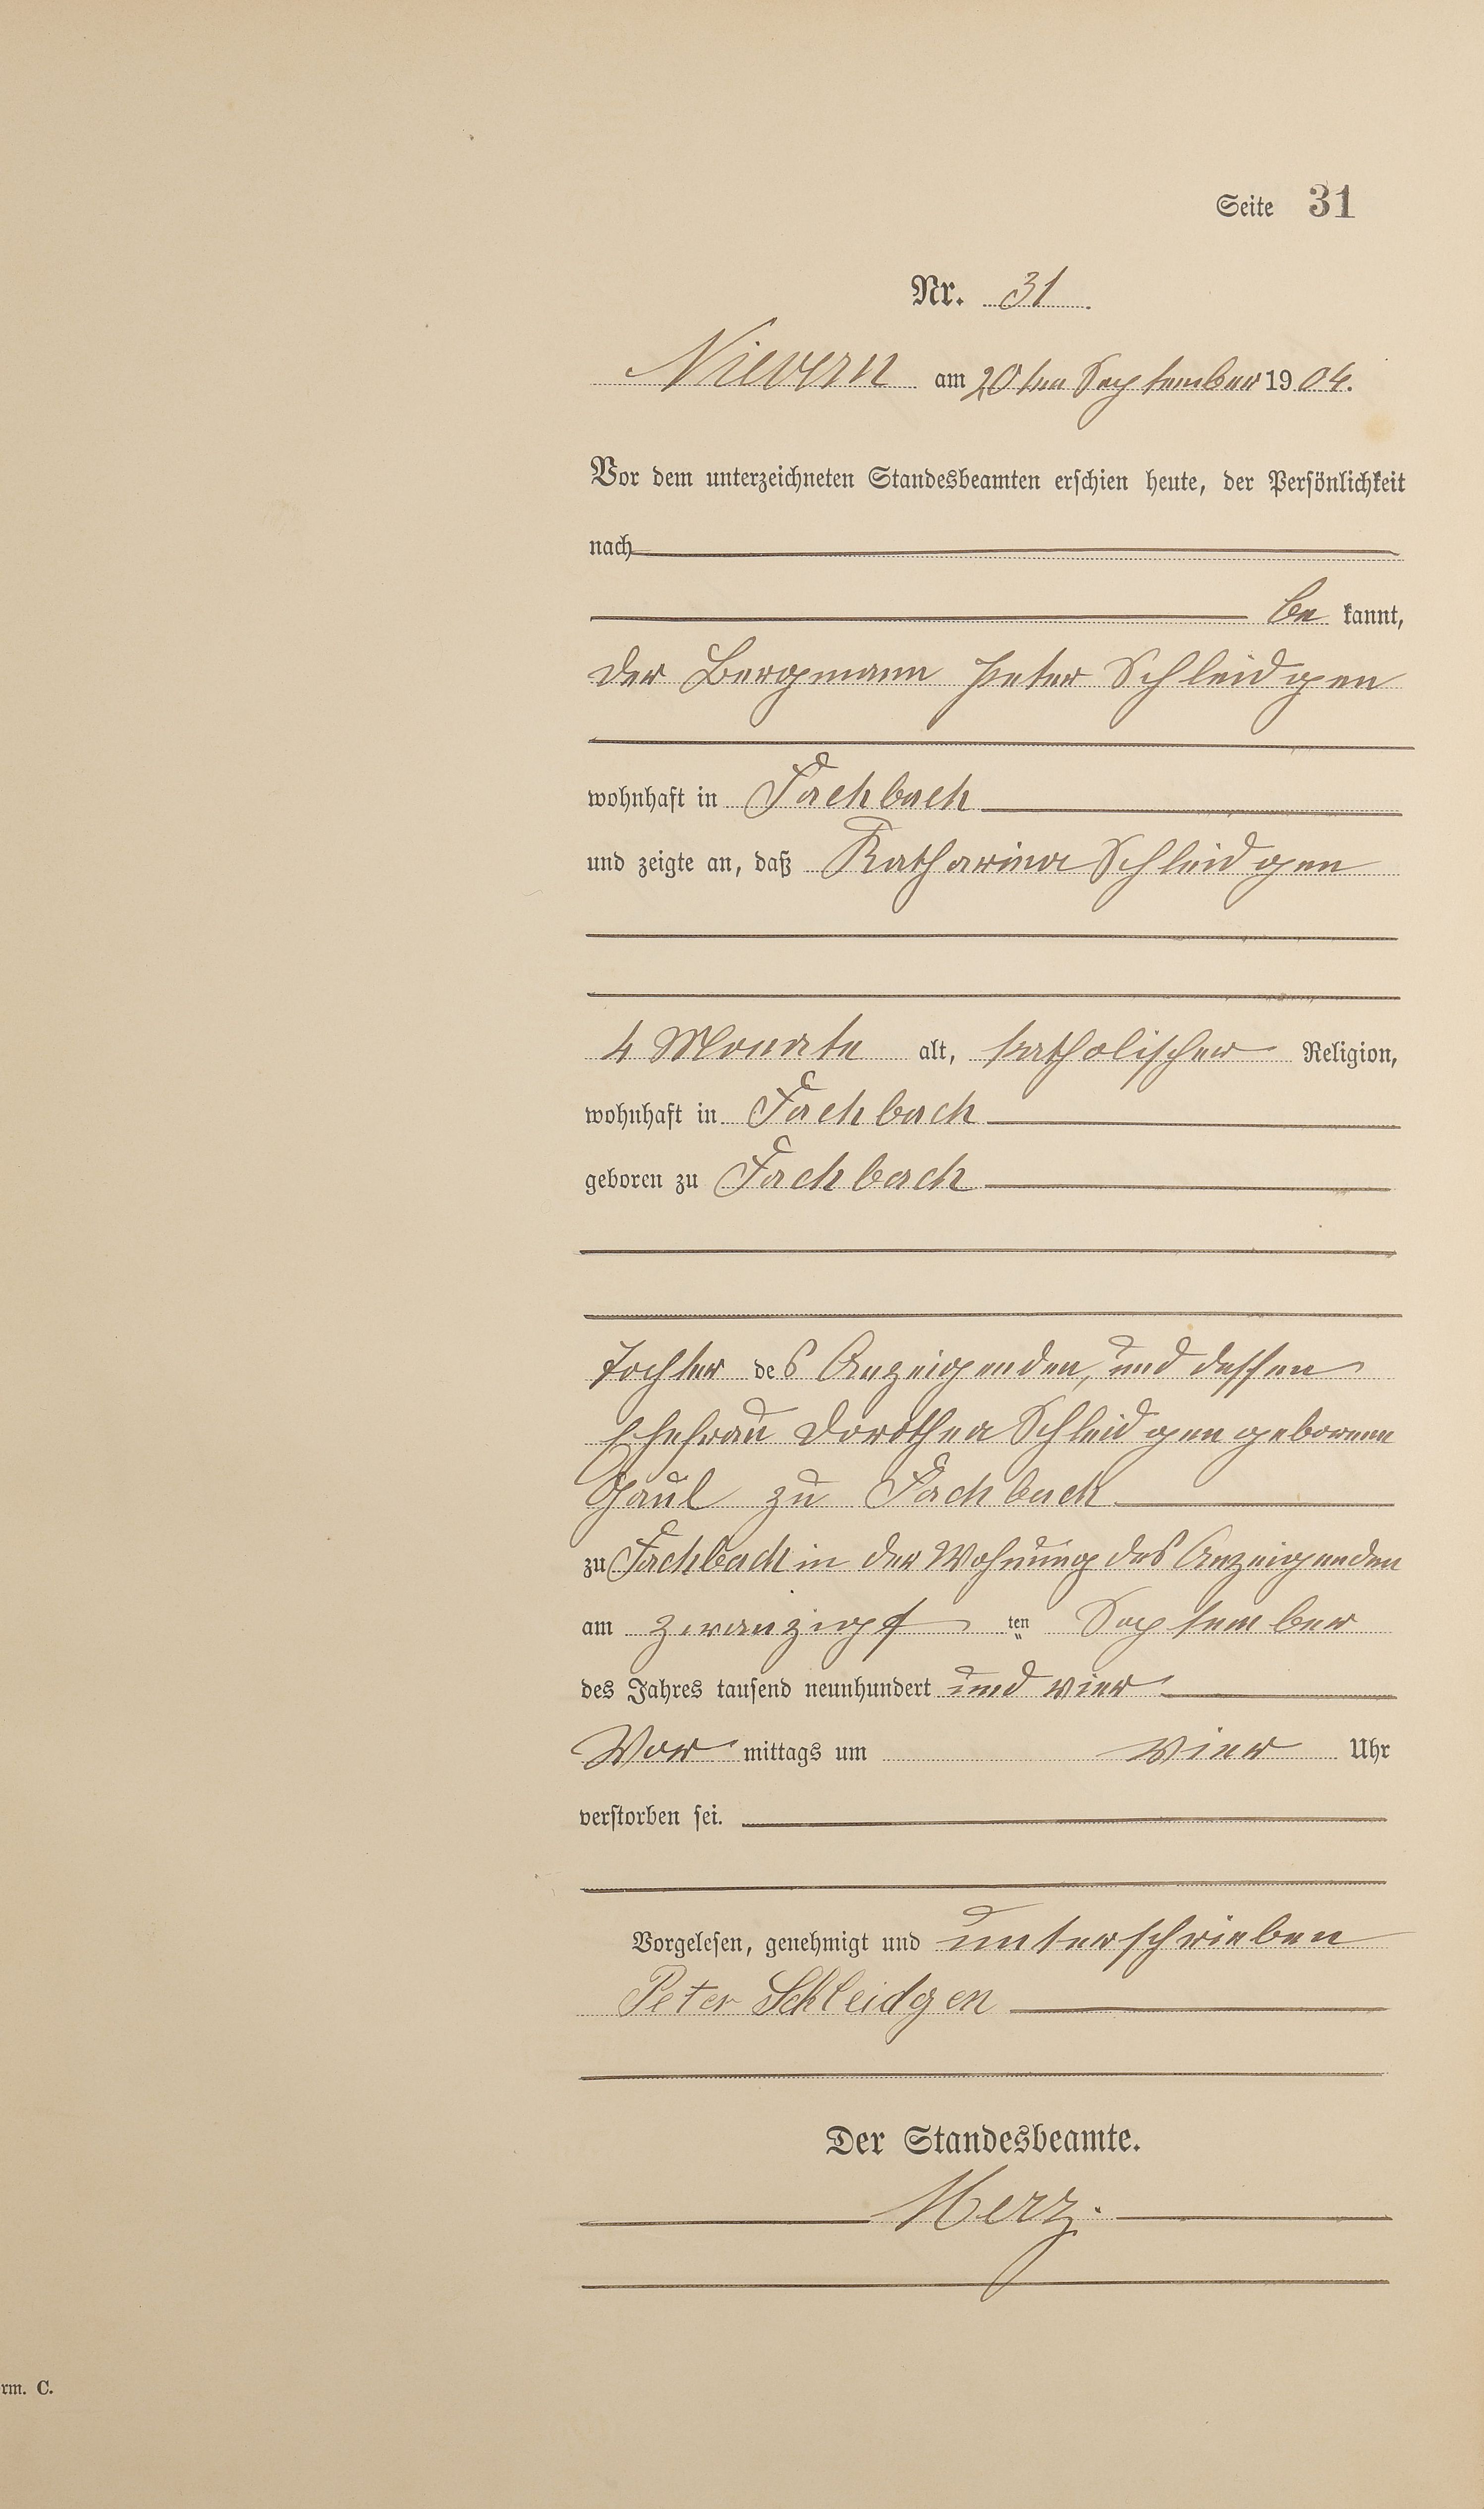 Seite 31
Nr. 31.
Nievern am 20ten September 1904.
Vor dem unterzeichneten Standesbeamten erschien heute, der Persönlichkeit
nach
be kannt,
der Bergmann Peter Schleidgen
wohnhaft in Fachbach
und zeigte an, daß Katharina Schleidgen
4 Monate alt, katholischer Religion,
wohnhaft in Fachbach
geboren zu Fachbach
Tochter des Anzeigenden, und dessen
Ehefrau Dorothea Schleidgen geborenen
Gaul zu Fachbach
zu Fachbach in der Wohnung des Anzeigenden
am zwanzigst ten September
des Jahres tausend neunhundert und vier
Vor mittags um vier Uhr
verstorben sei.
Vorgelesen, genehmigt und unterschrieben
Peter Schleidgen
Der Standesbeamte.
Herz.
rm. C.